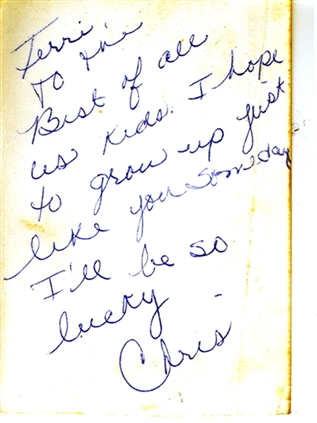 Terri
To the
Best of all
us kids. I hope
to grow up just
like you Som day
I'll be so
lucky -
Chris